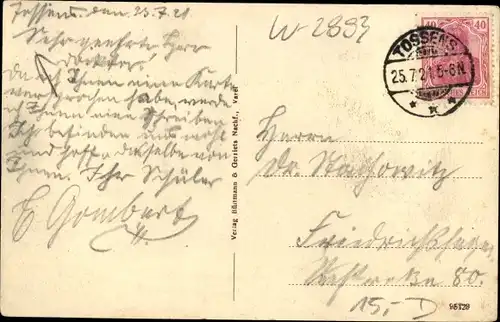 Tossens, den 25.7.21
Sehr geehrter Herr
Doktor!
Da ich Ihnen eine Karte
versprochen habe, werde
ich Ihnen eine schreiben.
Ich befinden uns wohl
und hoffe dasselbe von
Ihnen. Ihr Schüler
E. Gombert
W-2893
40 40
TOSSENS
25.7.21.5-6N.
Verlag Bültmann & Gerriets Nachf., Varel
Herrn
Dr. Rachowitz
Friedrichshagen
80.
95129
15,- D